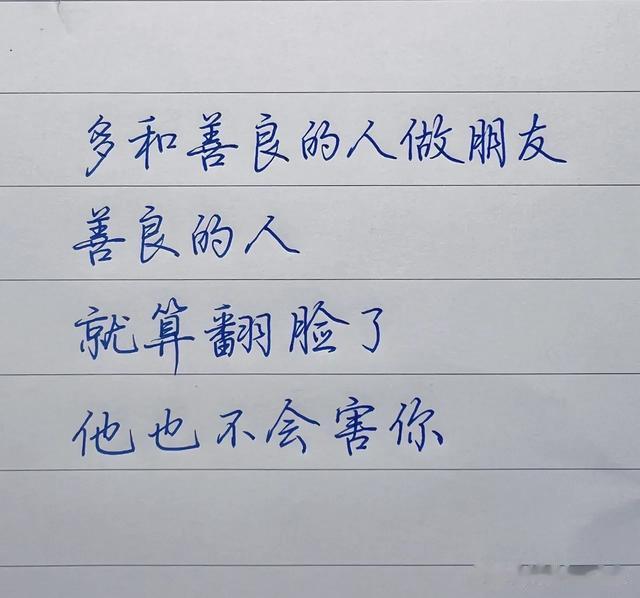 多和善良的人做朋友
善良的人
就算翻脸了
他也不会害你